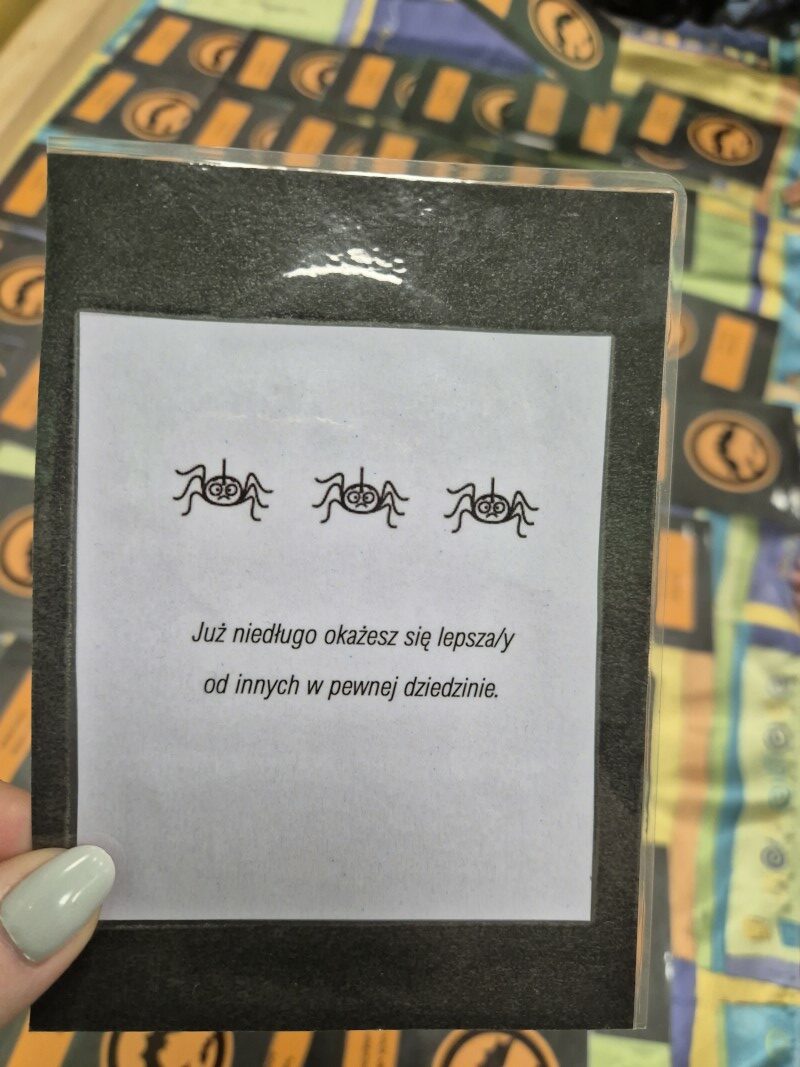 Już niedługo okażesz się lepsza/y
od innych w pewnej dziedzinie.